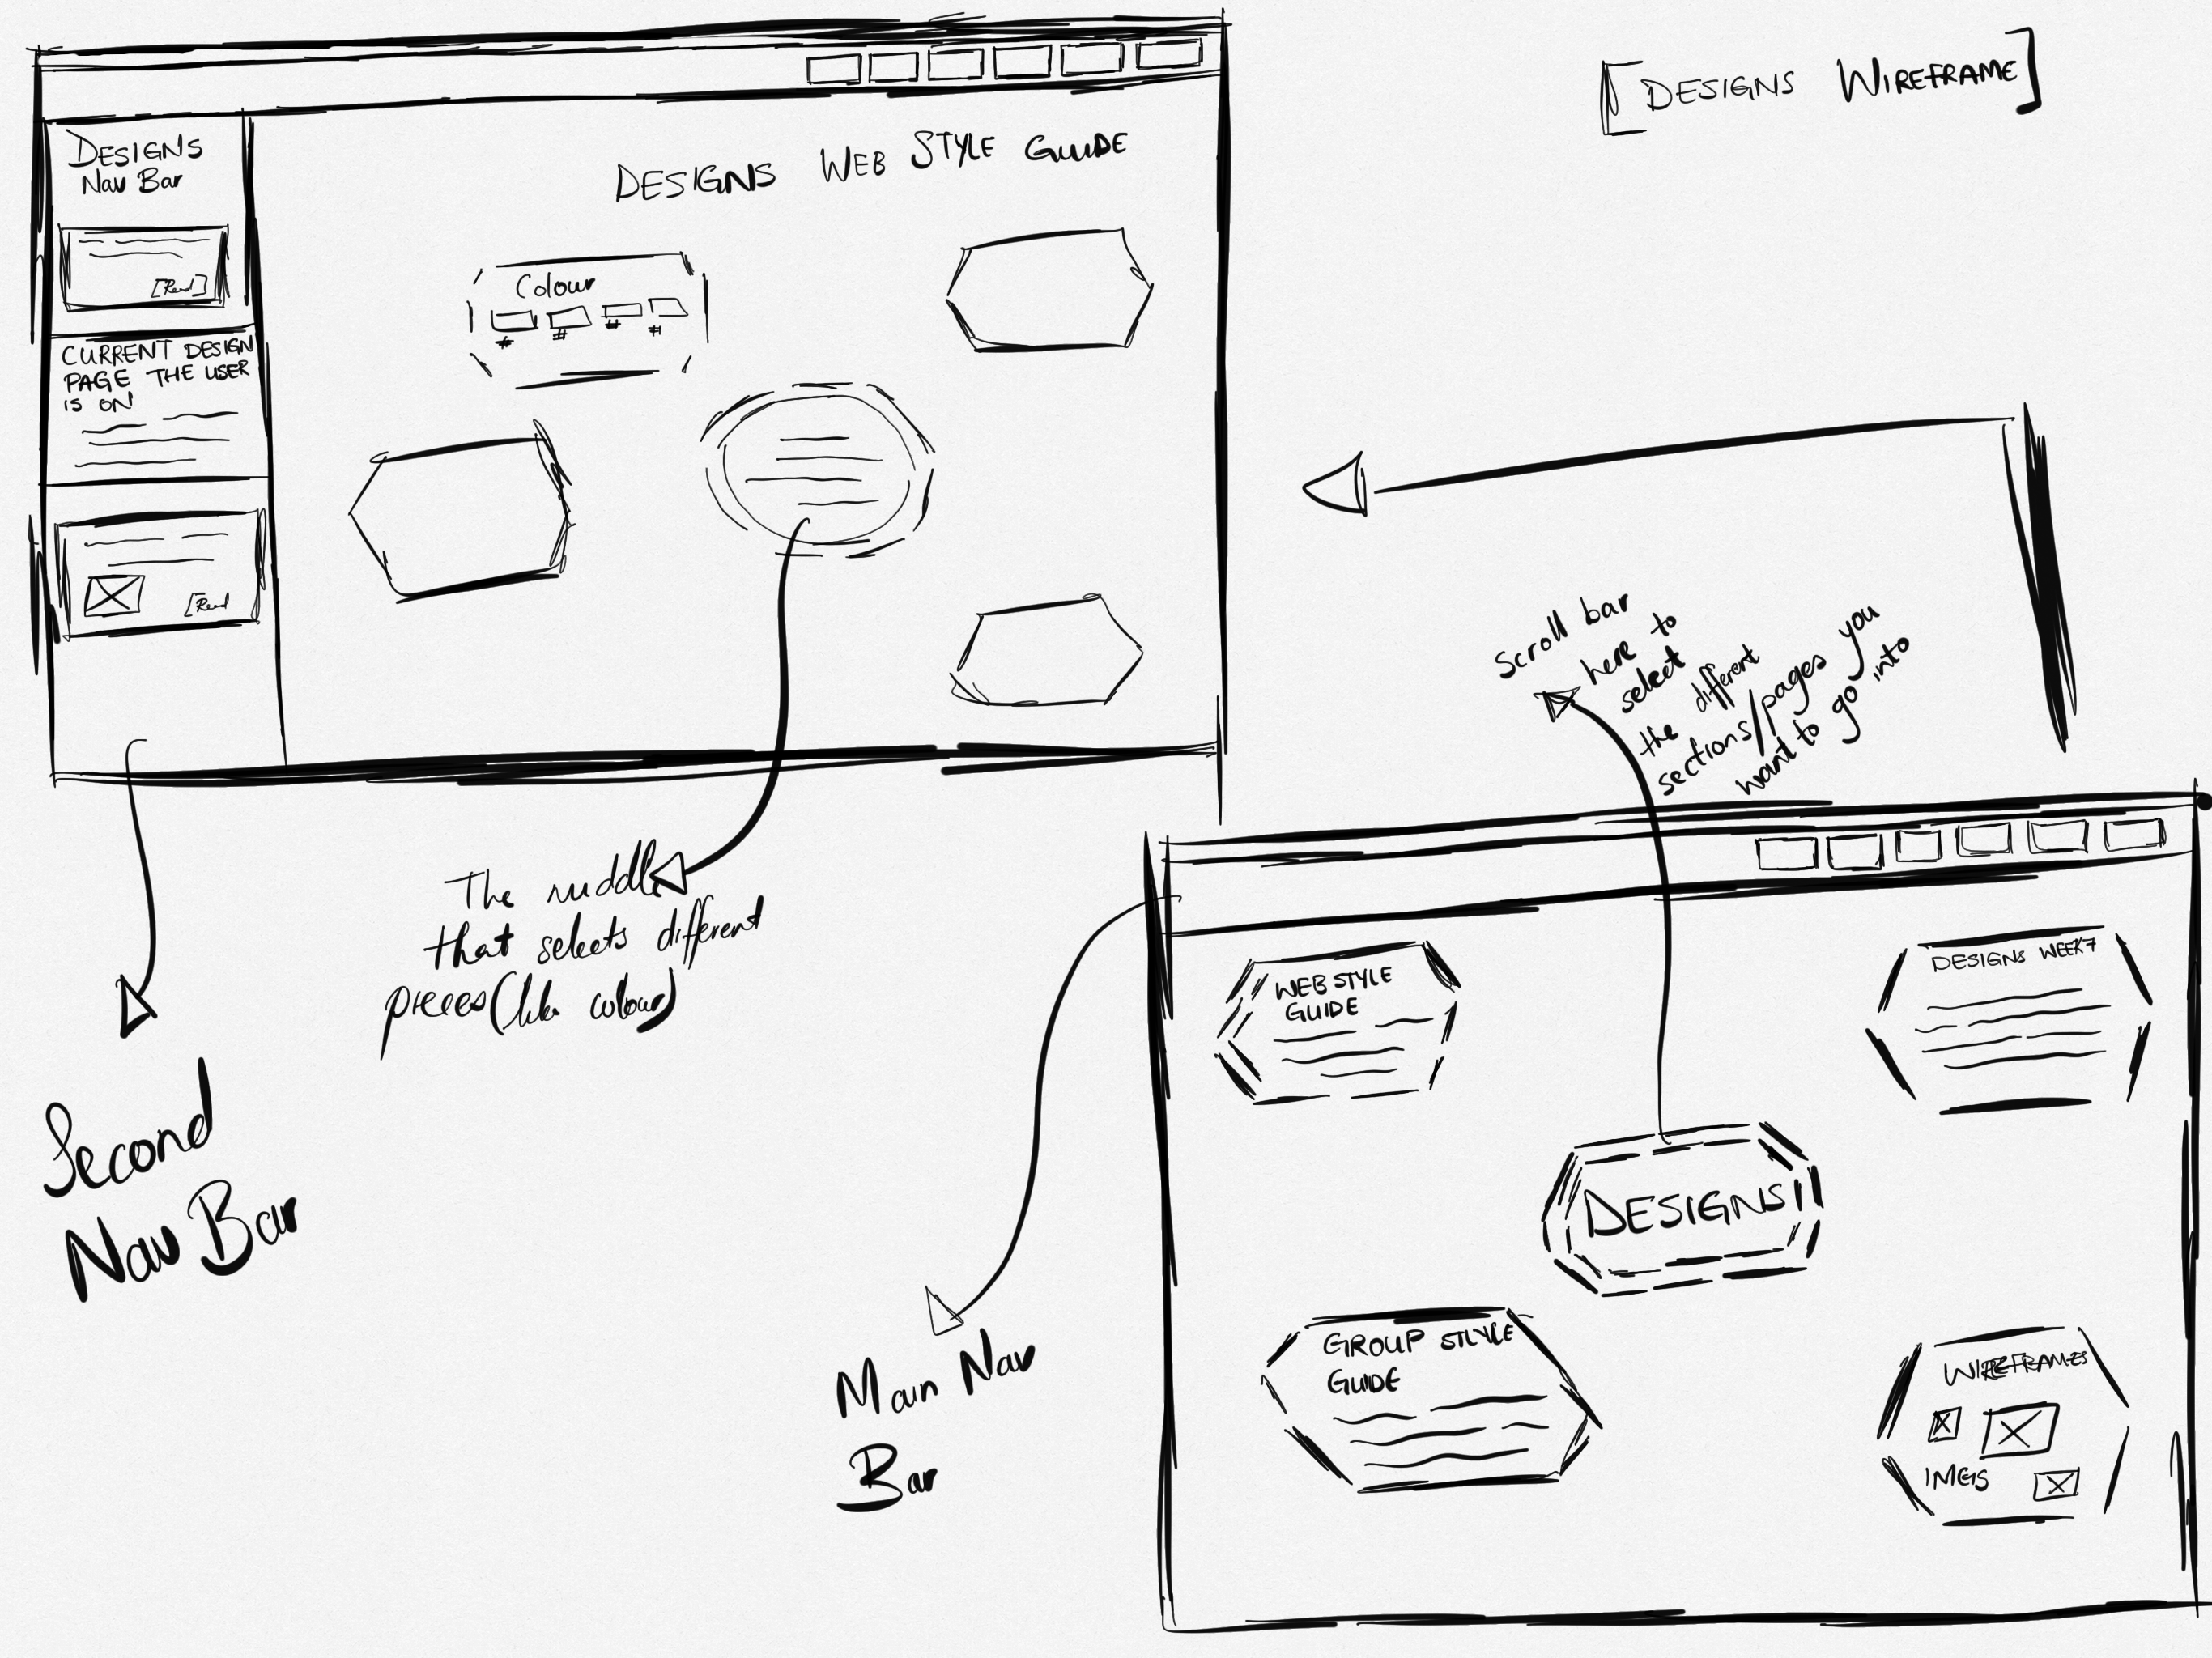 [DESIGNS WIREFRAME]
DESIGNS
Nav Bar
[Read]
CURRENT DESIGN
PAGE THE USER
IS ON
[Read
DESIGNS WEB STYLE GUIDE
Colour
# # # #
The middle
that selects different
pieces (like colour)
Second
Nav Bar
Scroll bar
here to
select
the different
sections/pages you
want to go into
Main Nav
Bar
WEB STYLE
GUIDE
DESIGNS WEEK 7
DESIGNS
GROUP STYLE
GUIDE
WIREFRAMES
IMGS